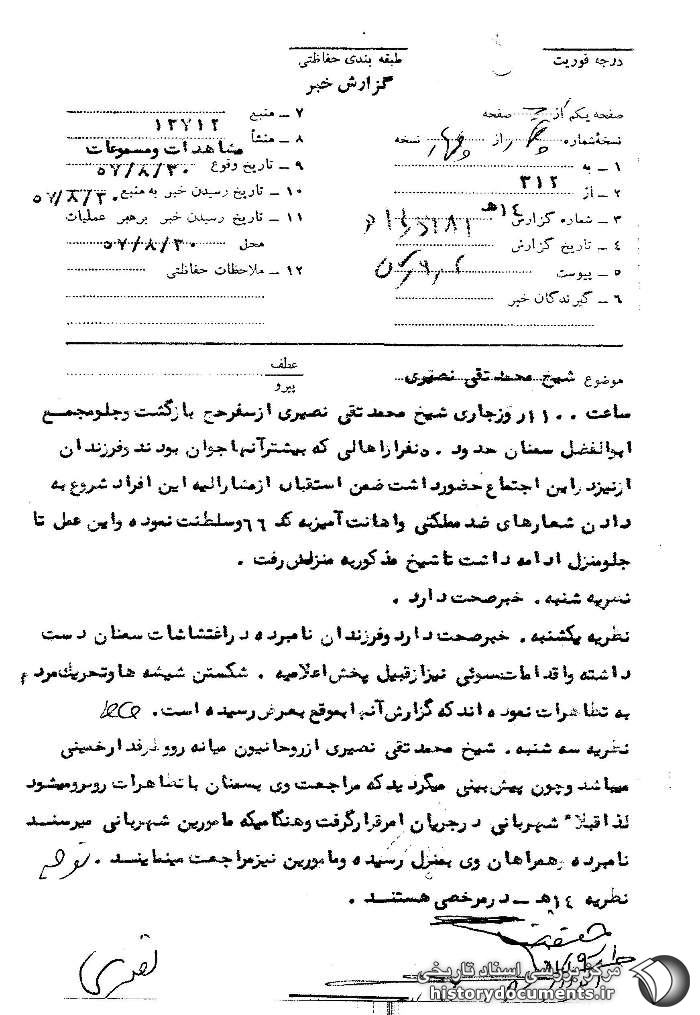 درجه فوریت
طبقه بندی حفاظتی
گزارش خبر
صفحه یکم از صفحه
نسخهٔ شماره از چهار نسخه
۱ ـ به
۲ ـ از ۳۱۲
۳ ـ شماره گزارش ۱٤هـ
٤ ـ تاریخ گزارش
۵ ـ پیوست
۶ ـ گیرندگان خبر
۷ ـ منبع ۱۲۷۱۲
۸ ـ منشأ مشاهدات و مسموعات
۹ ـ تاریخ وقوع ۵۷/۸/۳۰
۱۰ ـ تاریخ رسیدن خبر به منبع ۵۷/۸/۳۰
۱۱ ـ تاریخ رسیدن خبر برهبر عملیات
محل ۵۷/۸/۳۰
۱۲ ـ ملاحظات حفاظتی
موضوع شیخ محمد تقی نصیری
عطف
پیرو
ساعت ۱۱۰۰ روز جاری شیخ محمد تقی نصیری از سفر حج بازگشت و جلو مجمع
ابوالفضل سمنان حدود ۵۰ نفر از اهالی که بیشتر آنها جوان بودند و فرزندان
او نیز در این اجتماع حضور داشت ضمن استقبال از مشارالیه این افراد شروع به
دادن شعارهای ضد مملکتی و اهانت آمیز به کد ۶۶ و سلطنت نموده و این عمل تا
جلو منزل ادامه داشت تا شیخ مذکور به منزلش رفت .
نظریه شنبه . خبر صحت دارد .
نظریه یکشنبه . خبر صحت دارد و فرزندان نامبرده در اغتشاشات سمنان دست
داشته و اقدامات سوئی نیز از قبیل پخش اعلامیه . شکستن شیشه ها و تحریک مردم
به تظاهرات نموده اند که گزارش آنها بموقع بعرض رسیده است .
نظریه سه شنبه . شیخ محمد تقی نصیری از روحانیون میانه رو و طرفدار خمینی
میباشد و چون پیش بینی میگردید که مراجعت وی بسمنان با تظاهرات روبرو میشود
لذا قبلاً شهربانی در جریان امر قرار گرفت و هنگامیکه مامورین شهربانی میرسند
نامبرده و همراهان وی بمنزل رسیده و مامورین نیز مراجعت مینمایند .
نظریه ۱٤هـ ـ در مرخصی هستند .
مرکز بررسی اسناد تاریخی
historydocuments.ir